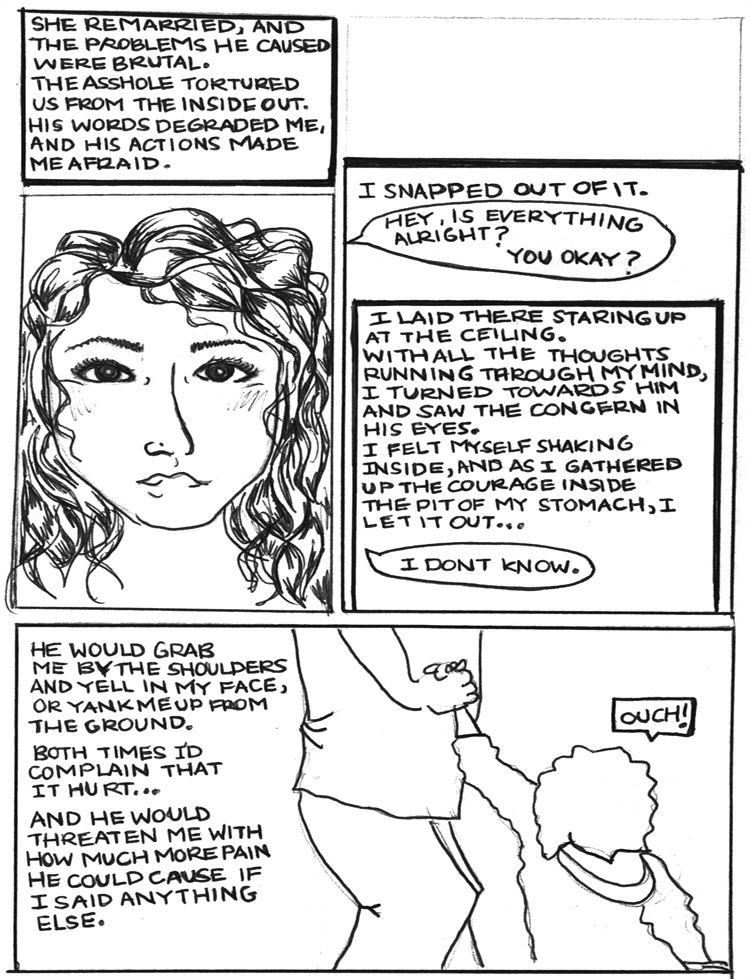 SHE REMARRIED, AND
THE PROBLEMS HE CAUSED
WERE BRUTAL.
THE ASSHOLE TORTURED
US FROM THE INSIDE OUT.
HIS WORDS DEGRADED ME,
AND HIS ACTIONS MADE
ME AFRAID.
I SNAPPED OUT OF IT.
HEY, IS EVERYTHING
ALRIGHT?
YOU OKAY?
I LAID THERE STARING UP
AT THE CEILING.
WITH ALL THE THOUGHTS
RUNNING THROUGH MY MIND,
I TURNED TOWARDS HIM
AND SAW THE CONCERN IN
HIS EYES.
I FELT MYSELF SHAKING
INSIDE, AND AS I GATHERED
UP THE COURAGE INSIDE
THE PIT OF MY STOMACH, I
LET IT OUT...
I DONT KNOW.
HE WOULD GRAB
ME BY THE SHOULDERS
AND YELL IN MY FACE,
OR YANK ME UP FROM
THE GROUND.
BOTH TIMES I'D
COMPLAIN THAT
IT HURT...
AND HE WOULD
THREATEN ME WITH
HOW MUCH MORE PAIN
HE COULD CAUSE IF
I SAID ANYTHING
ELSE.
OUCH!